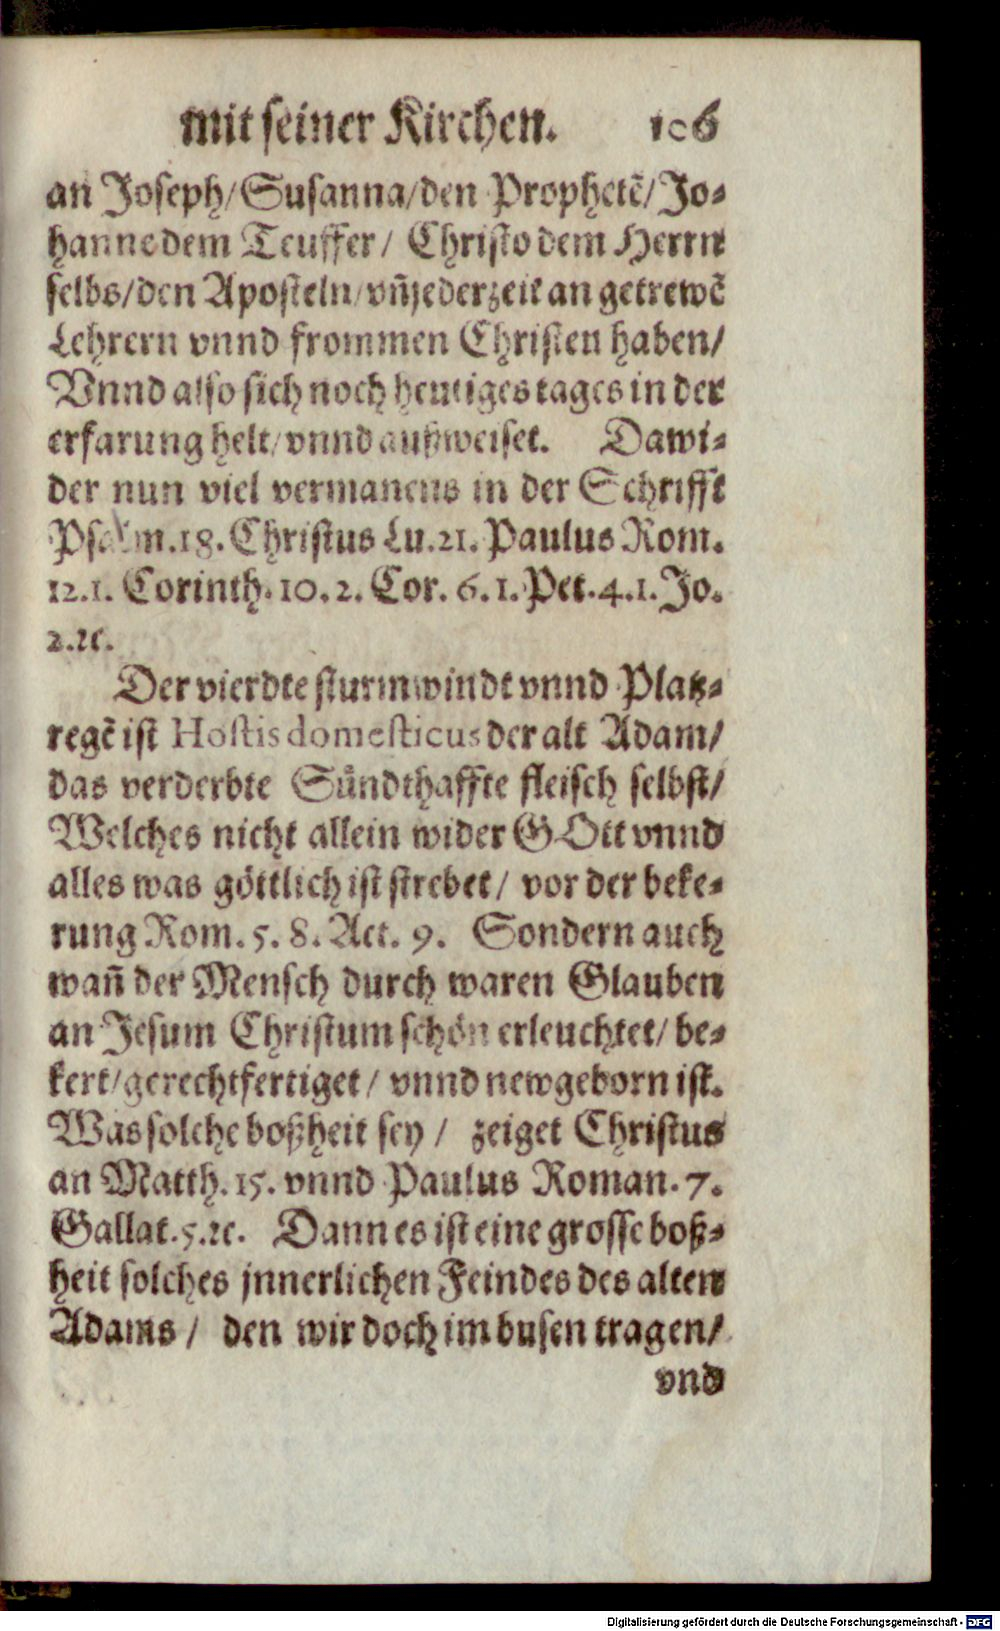 mit seiner Kirchen. 106
an Joseph/Susanna/den Prophetẽ/Jo-
hanne dem Teuffer/ Christo dem Herrn
selbs/den Aposteln/vñ jederzeit an getrewẽ
Lehrern vnnd frommen Christen haben/
Vnnd also sich noch heutiges tages in der
erfarung helt/vnnd außweiset. Dawi-
der nun viel vermanens in der Schrifft
Psalm.18. Christus Lu.21. Paulus Rom.
12.1. Corinth.10.2. Cor. 6.1. Pet.4.1. Jo.
2.ꝛc.
Der vierdte sturmwindt vnnd Platz-
regẽ ist Hostis domesticus der alt Adam/
das verderbte Sündthaffte fleisch selbst/
Welches nicht allein wider GOtt vnnd
alles was göttlich ist strebet/ vor der beke-
rung Rom. 5. 8. Act. 9. Sondern auch
wañ der Mensch durch waren Glauben
an Jesum Christum schön erleuchtet/ be-
kert/gerechtfertiget/ vnnd newgeborn ist.
Was solche boßheit sey/ zeiget Christus
an Matth.15. vnnd Paulus Roman.7.
Gallat.5.ꝛc. Dann es ist eine grosse boß-
heit solches jnnerlichen Feindes des alten
Adams/ den wir doch im busen tragen/
vnd
Digitalisierung gefördert durch die Deutsche Forschungsgemeinschaft - DFG